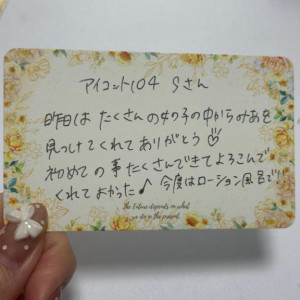 アイコット104 Sさん
昨日は たくさんの女の子の中からみあを
見つけてくれてありがとう♡
初めての事たくさんできてよろこんで
くれてよかった♪ 今度はローション風呂で!!
The Future depends on what
we do in the present.